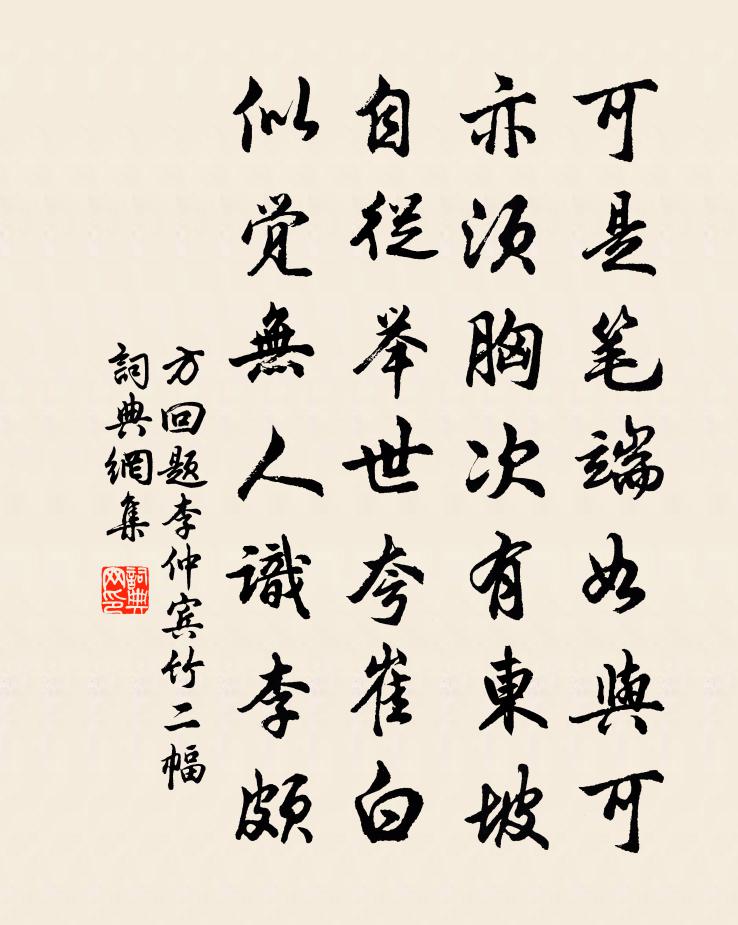 可是笔端如與可
亦须胸次有東坡
自從举世夸崔白
似觉無人識李颇
方回题李仲宾竹二幅
詞典網集
詞典网印